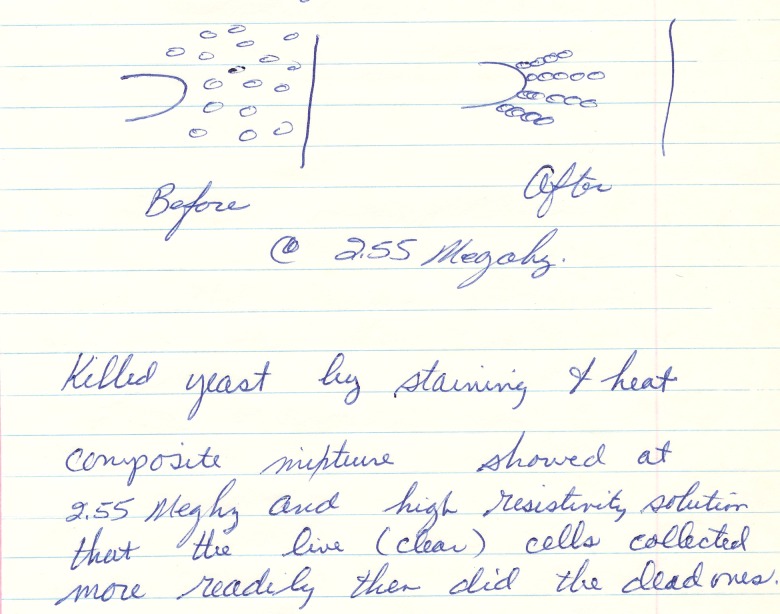 Before
After
@ 2.55 Megahy.
Killed yeast by staining & heat
composite mixture showed at
2.55 Meghy and high resistivity solution
that the live (clear) cells collected
more readily then did the dead ones.